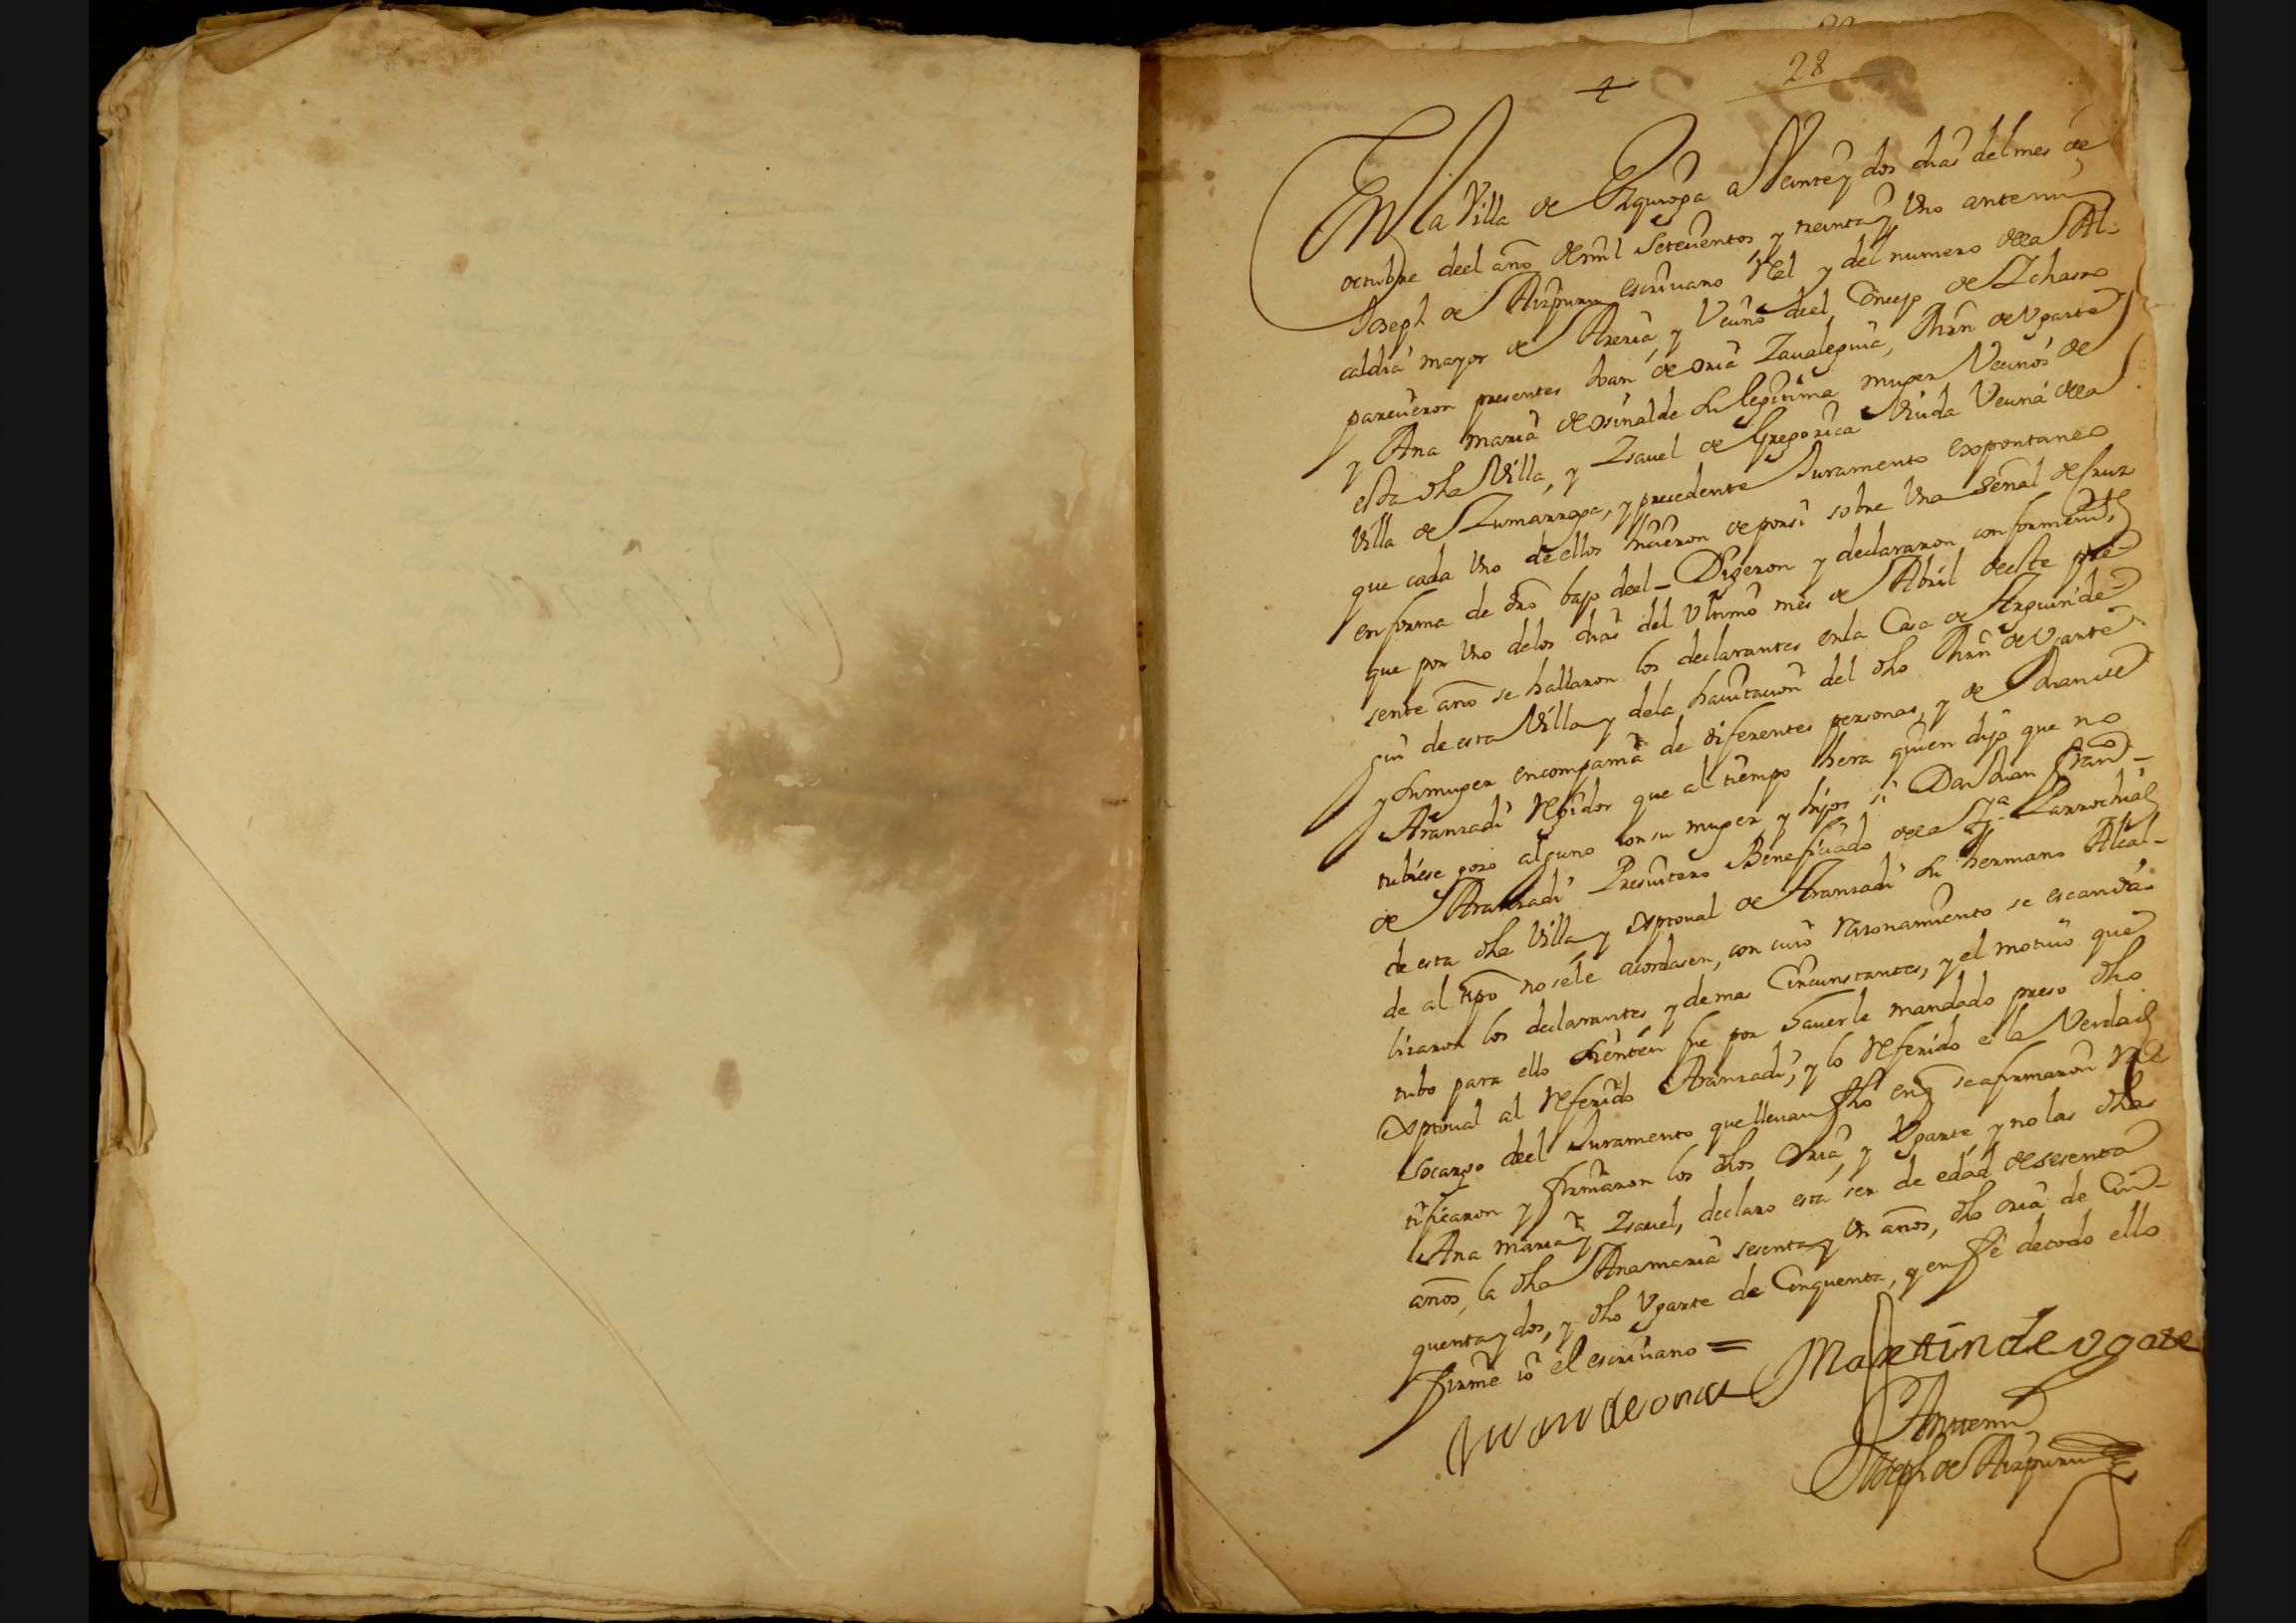 4
28
En la Villa de Ezquioga a Veinte y dos dias del mes de
octubre deel año de mil Setecientos y treinta y Uno ante mi
Joseph de Aizpuru escriuano Real y del numero dela Al-
caldia mayor de Areria, y Vecino deel Concejo de Ichaso
parecieron presentes Juan de oria Zaualeguia, Mrn de Vgarte
y Ana maria de osinalde su legitima muger Vecinos de
esta dha Villa, y Isauel de Gregorica Viuda Vecina dela
Villa de Zumarraga, y precedente Juramento expontaneo
que cada Vno de ellos hicieron de porsi sobre Una señal de cruz
en forma de dro bajo deel - Digeron y declararon conformemte
que por Vno delos dias del Vltimo mes de Abril deeste pre-
sente año se hallaron los declarantes en la Casa de Arguinde-
gui de esta Villa y dela hauitacion del dho Mrn de Vgarte
y su muger en compañia de diferentes personas, y de Francisco
Aranzadi Regidor que al tiempo hera quien dijo que no
tubiese gozo alguno con su muger y hijos si Don Juan Franco
de Aranzadi Presuitero Beneficiado dela Yga Parrochial
de esta dha Villa y Xptoual de Aranzadi su hermano Alcal-
de al tpo no sele acordasen, con cuio Razonamiento se escanda-
lizaron los declarantes y demas Circunstantes, y el motiuo que
tubo para ello sienten fue por hauerle mandado preso dho
Xptoual al Referido Aranzadi, y lo Referido es la Verdad
socargo deel Juramento que lleuan fho en q se afirmaron Ra-
tificaron y firmaron los dhos Oria y Vgarte y no las dhas
Ana maria y Isauel, declaro esta ser de edad de sesenta
años, la dha Ana maria sesenta y Un años, dho oria de Cin-
quenta y dos, y dho Vgarte de Cinquenta, y en fe de todo ello
firme io el escriuano =
Juan de oria Martin de vgarte
Ante mi
Joseph de Aizpuru